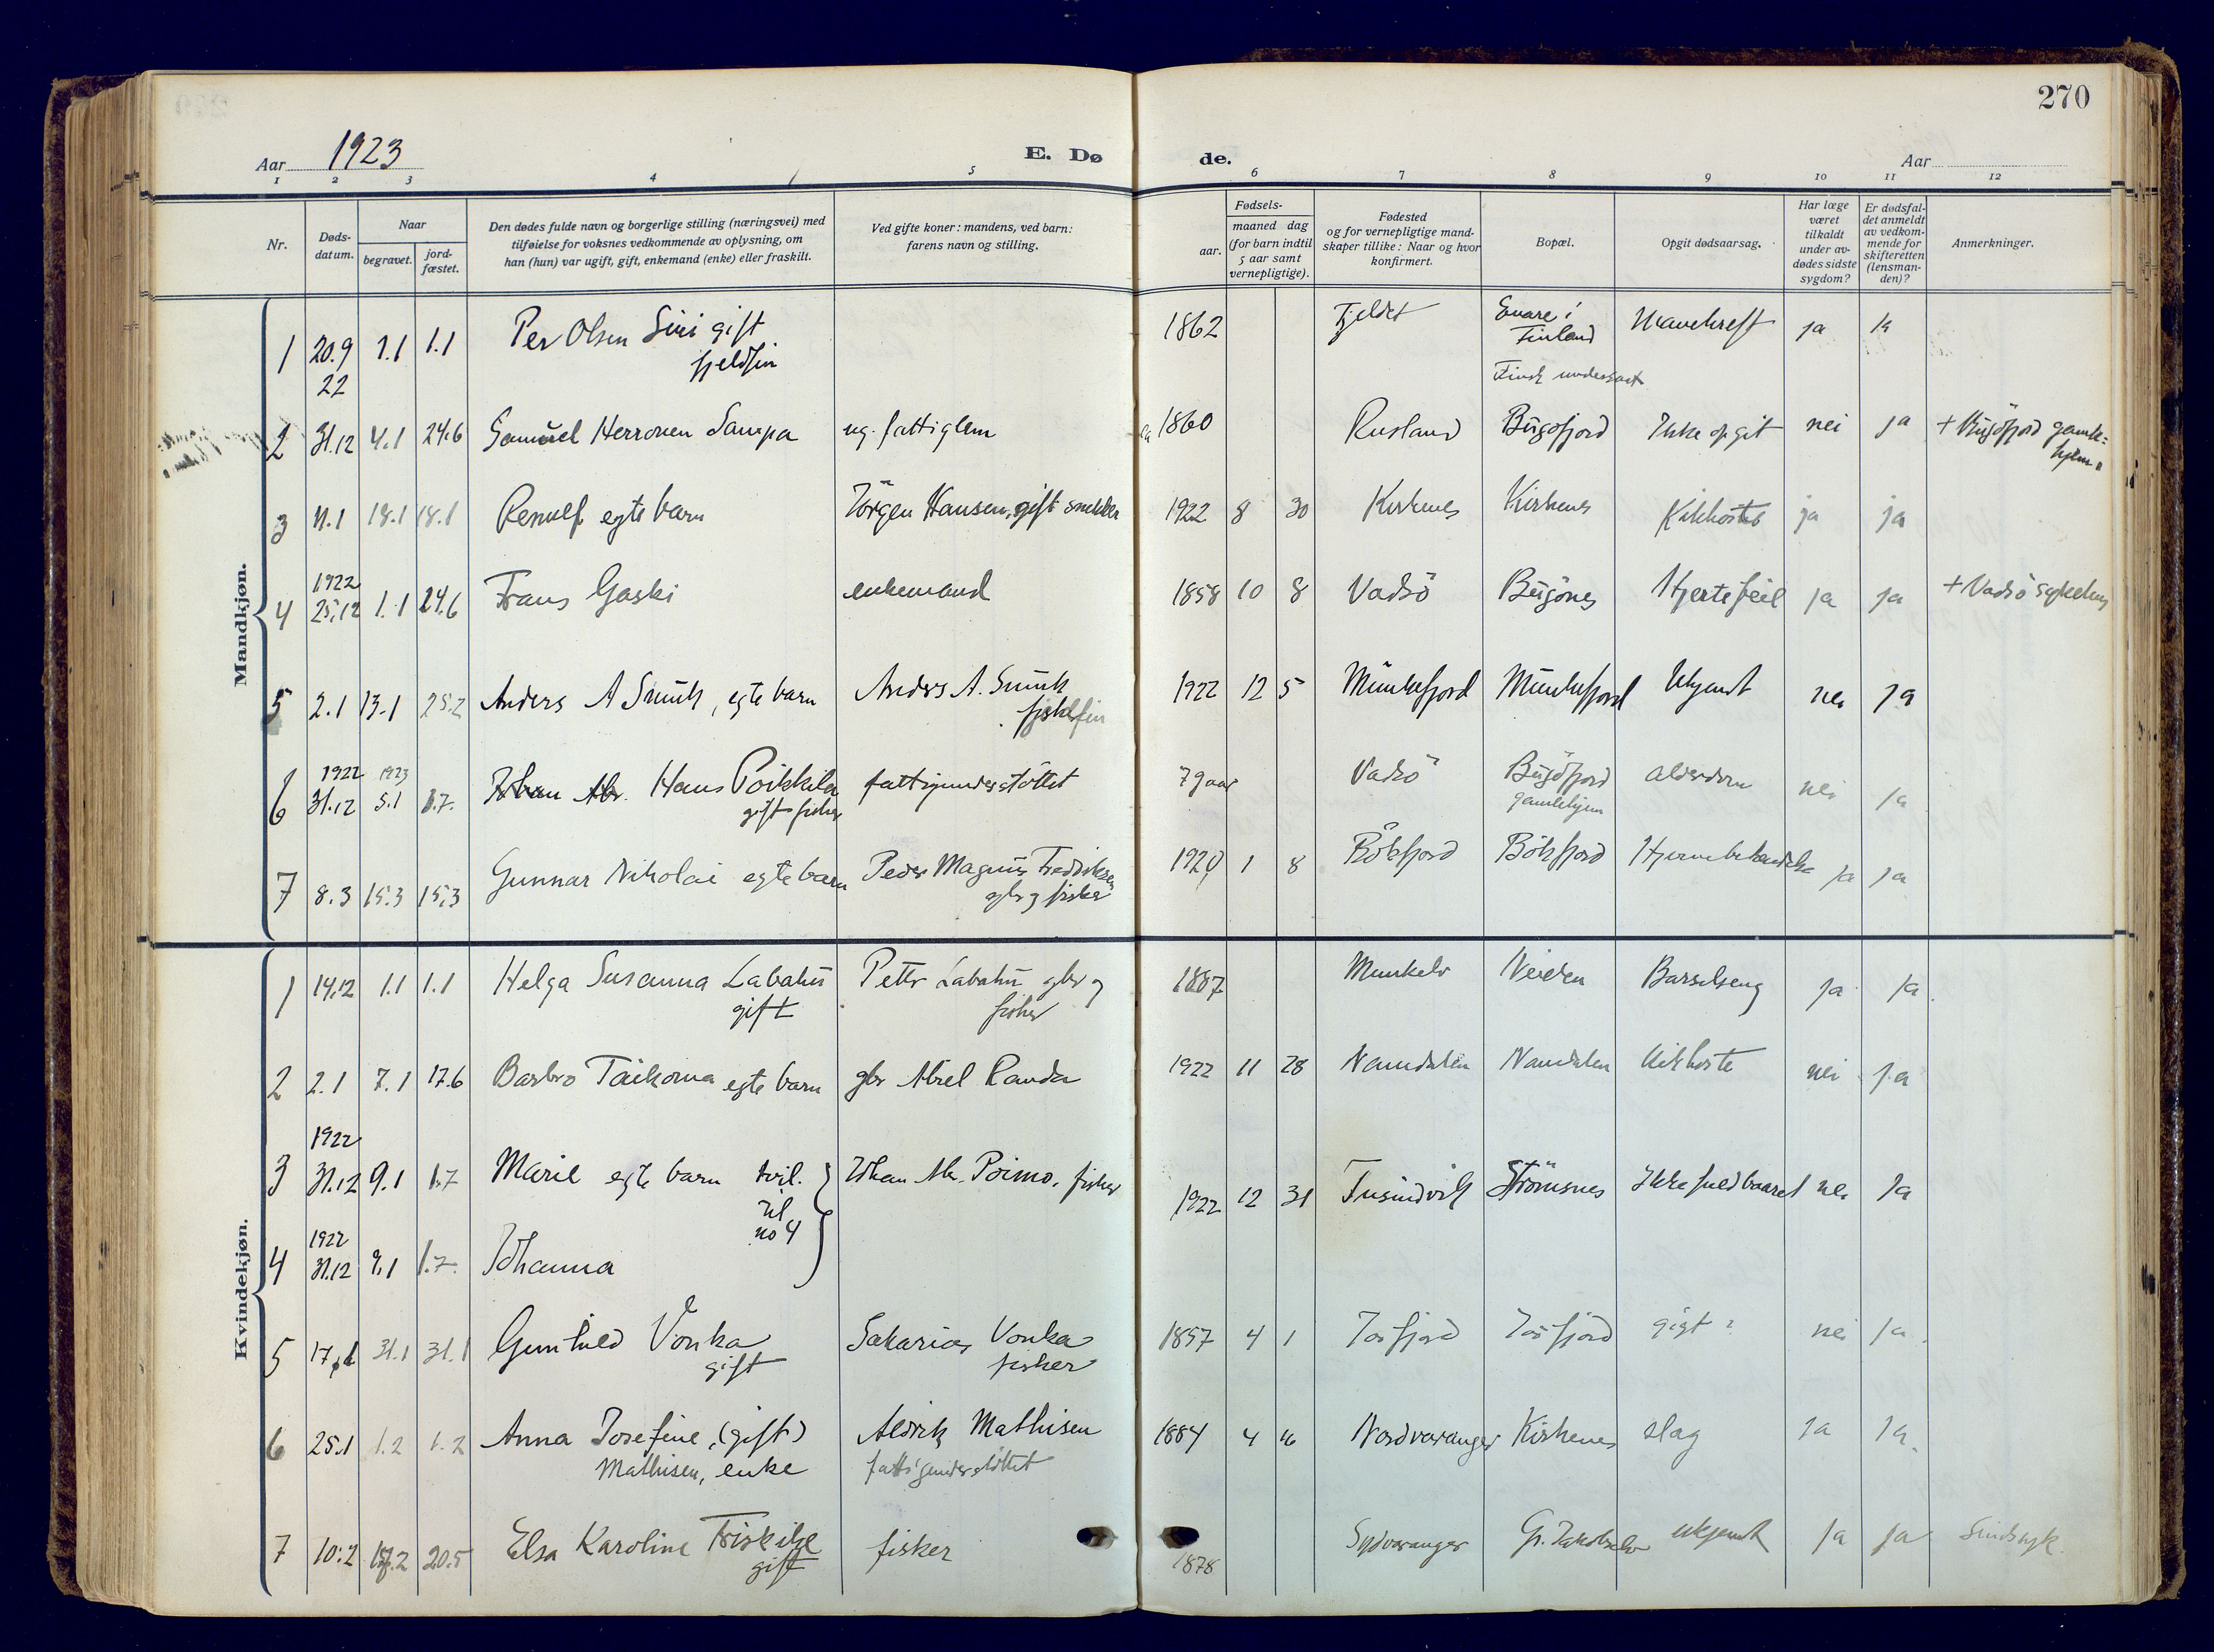 270
Aar 1923
E. Dø
de.
Aar
1 2 3 4 5 6 7 8 9 10 11 12
Nr.
Døds-
datum.
Naar
begravet.
jord-
fæstet.
Den dødes fulde navn og borgerlige stilling (næringsvei) med
tilføielse for voksnes vedkommende av oplysning, om
han (hun) var ugift, gift, enkemand (enke) eller fraskilt.
Ved gifte koner: mandens, ved barn:
farens navn og stilling.
Fødsels-
aar.
maaned dag
(for barn indtil
5 aar samt
vernepligtige).
Fødested
og for vernepligtige mand-
skaper tillike: Naar og hvor
konfirmert.
Bopæl.
Opgit dødsaarsag.
Har læge
været
tilkaldt
under av-
dødes sidste
sygdom?
Er dødsfal-
det anmeldt
av vedkom-
mende for
skifteretten
(lensman-
den)?
Anmerkninger.
Mandkjøn.
1 20.9 1.1 1.1 Per Olsen Siri gift 1862 Fjeldet Enare i ja ja
22 fjeldfin Finland
Finsk undersaat
2 31.12 4.1 24.6 Samuel Herronen Sampa ug. fattiglem ca 1860 Rusland Bugøfjord Ikke opgit nei ja + Bugøfjord gamle=
hjem.
3 11.1 18.1 18.1 egte barn Jörgen Hansen, gift snekker 1922 8 30 Kirkenes Kirkenes Kikhoste ja ja
1922
4 25.12 1.1 24.6 Frans Gaski enkemand 1858 10 8 Vadsö Bugönes Hjertefeil ja ja + Vadsö sykehus
5 2.1 13.1 25.2 Anders A Smuk, egte barn Anders A. Smuk 1922 12 5 Munkefjord Munkefjord Ukjendt nei ja
1922 1923
6 31.12 5.1 1.7. Johan Hans Poikkila fattigunderstöttet 79 aar Vadsö Bugöfjord alderdom nei ja
gift fisker gamlehjem
7 8.3 15.3 15.3 Gunnar Nikolai egte barn Peder Magnus Fredriksen 1920 1 8 Bökfjord Bökfjord ja ja
gbr og fisker
Kvindekjøn.
1 14.12 1.1 1.1 Helga Susanna Labahu Petter Labahu gbr og 1887 Munkelv Neiden Barselseng ja ja.
gift fisker
2 2.1 7.1 17.6 Barbro egte barn gbr Abel Randa 1922 11 28 Namdalen Namdalen Kikhoste nei ja
1922
3 31.12 9.1 1.7 Marie egte barn tvil. Johan Poimo. fisker 1922 12 31 Tusindvik Strömsnes Ikke fuldbaaret nei ja
til
no 4
1922
4 31.12 9.1 1.7. Johanna
5 17.1 31.1 31.1 Gunhild Vonka Sakarias Vonka 1857 4 1 gigt? nei ja.
gift fisker
6 25.1 1.2 1.2 Anna Josefine, (gift) Aldrik Mathisen 1884 4 16 Nordvaranger Kirkenes slag ja ja.
Mathisen, enke fattigunderstöttet
7 10.2 18.2 20.5 Elsa Karoline Friskilæ fisker 1878 Sydvaranger Gr. Jakobselv ukjendt ja ja Sindssyk.
gift